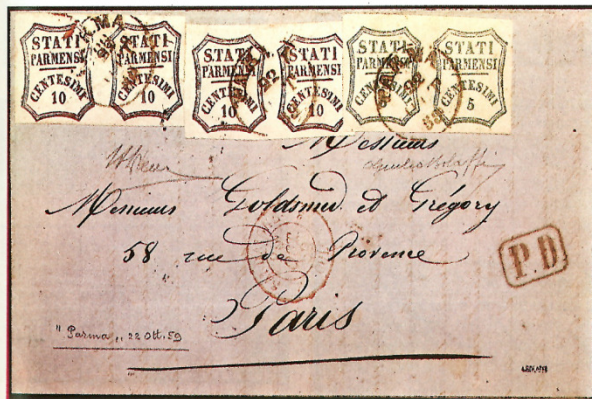 STATI PARMENSI CENTESIMI 10
STATI PARMENSI CENTESIMI 10
STATI PARMENSI CENTESIMI 10
STATI PARMENSI CENTESIMI 10
STATI PARMENSI CENTESIMI
STATI PARMENSI CENTESIMI 5
Messieurs
Messieurs Goldsmid et Grégory
58 rue de Provence
P.D
Paris
"Parma„ 22 Ott. 59